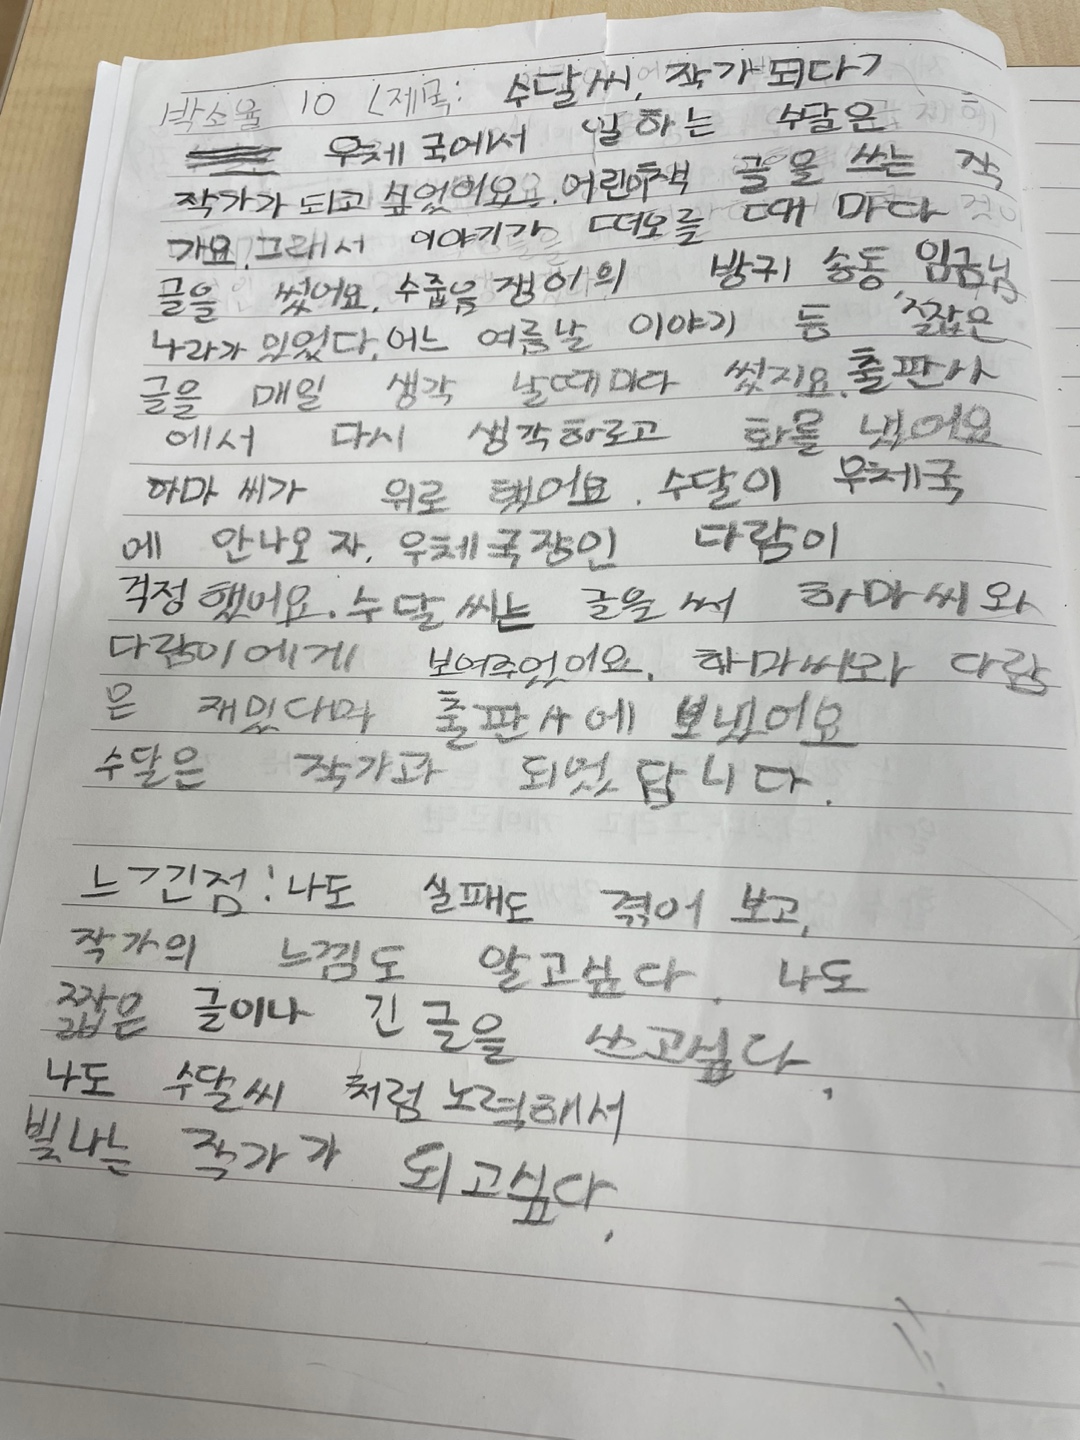 박소율 10 <제목: 수달씨, 작가되다>
우체국에서 일하는 수달은
작가가 되고 싶었어요. 어린이책 글을 쓰는 작
가요. 그래서 이야기가 떠오를 때 마다
글을 썼어요. 수줍음쟁이의 방귀 송동 임금님
나라가 있었다. 어느 여름날 이야기 등 짧은
글을 매일 생각 날때마다 썼지요. 출판사
에서 다시 생각하로고 화를 냈어요
하마 씨가 위로 했어요. 수달이 우체국
에 안나오자, 우체국장인 다람이
걱정했어요. 수달씨는 글을 써 하마씨와
다람이에게 보여주었어요. 하마씨와 다람
은 재밌다며 출판사에 보냈어요
수달은 작가과 되엇답니다.
느낀점: 나도 실패도 겪어 보고,
작가의 느낌도 알고싶다. 나도
짧은 글이나 긴글을 쓰고싶다.
나도 수달씨 처럼 노력해서
빛나는 작가가 되고싶다.